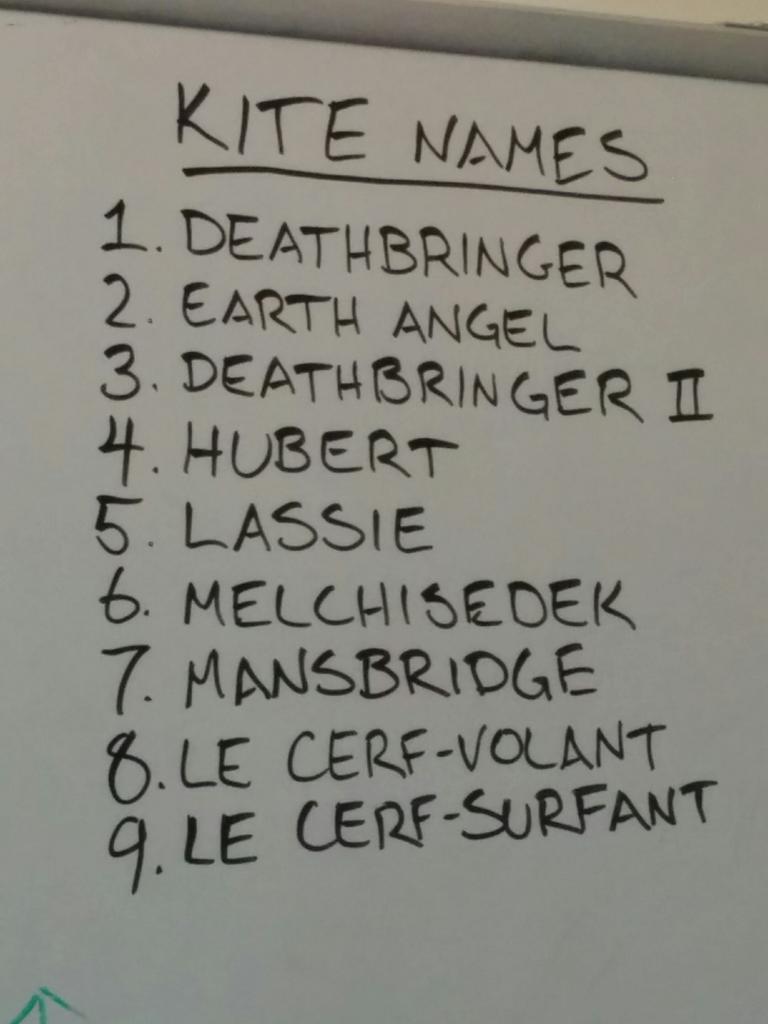 KITE NAMES
1. DEATHBRINGER
2. EARTH ANGEL
3. DEATHBRINGER II
4. HUBERT
5. LASSIE
6. MELCHISEDEK
7. MANSBRIDGE
8. LE CERF-VOLANT
9. LE CERF-SURFANT